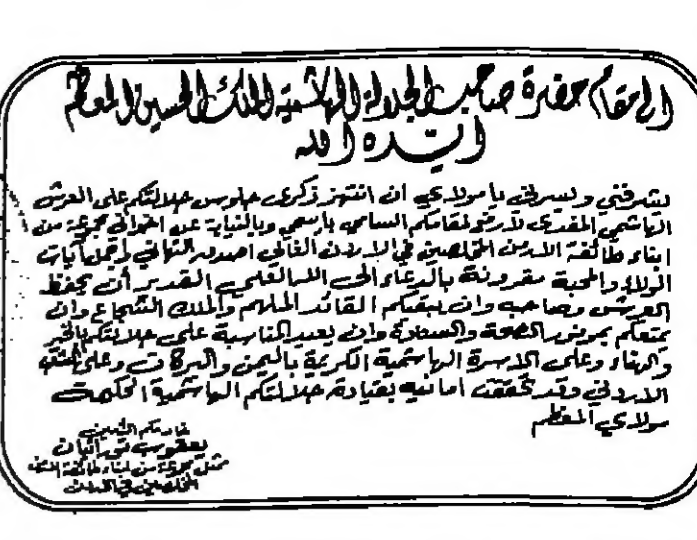 الى مقام حضرة صاحب الجلالة الهاشمية الملك الحسين المعظم
ايده الله
يشرفني ويسرني يا مولاي ان انتهز ذكرى جلوس جلالتكم على العرش
الهاشمي المفدى لأرفع لمقامكم السامي باسمي وبالنيابة عن اخواني مجموعة من
ابناء طائفة الارمن المخلصين في الاردن الغالي اصدق التهاني واجمل آيات
الولاء والمحبة مقرونة بالدعاء الى الله العلي القدير أن يحفظ
العرش وصاحب وان يبقيكم القائد الملهم والملك الشجاع وان
يمتعكم بموفور الصحة والسعادة وان يعيد المناسبة على جلالتكم بالخير
والهناء وعلى الاسرة الهاشمية الكريمة باليمن والبركات وعلى الشعب
الاردني وقد تحققت امانيه بقيادة جلالتكم الهاشمية الحكيمة
مولاي المعظم
خادمكم الأمين
يعقوب تورانيان
ممثل مجموعة من ابناء طائفة الارمن
المخلصين في الاردن